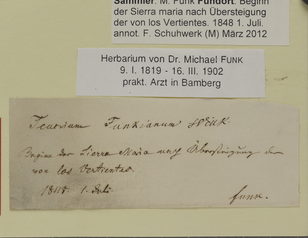 Sammler: M. Funk Fundort: Beginn
der Sierra maria nach Übersteigung
der von los Vertientes. 1848 1. Juli.
annot. F. Schuhwerk (M) März 2012
Herbarium von Dr. Michael FUNK
9. I. 1819 - 16. III. 1902
prakt. Arzt in Bamberg
Teucrium Funkianum Willk
Beginn der Sierra Maria nach Übersteigung der
von los Vertientes.
1848 1. Juli
Funk.